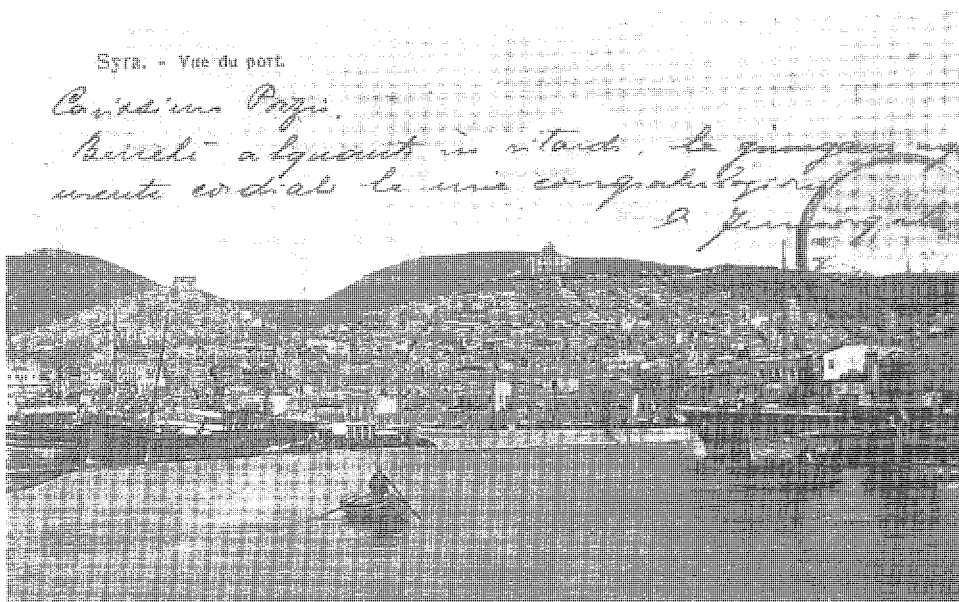 Syra. - Vue du port.
Carissimo
Benchè alquanto in ritardo, le giungano
mente cordiali le mie congratulazioni